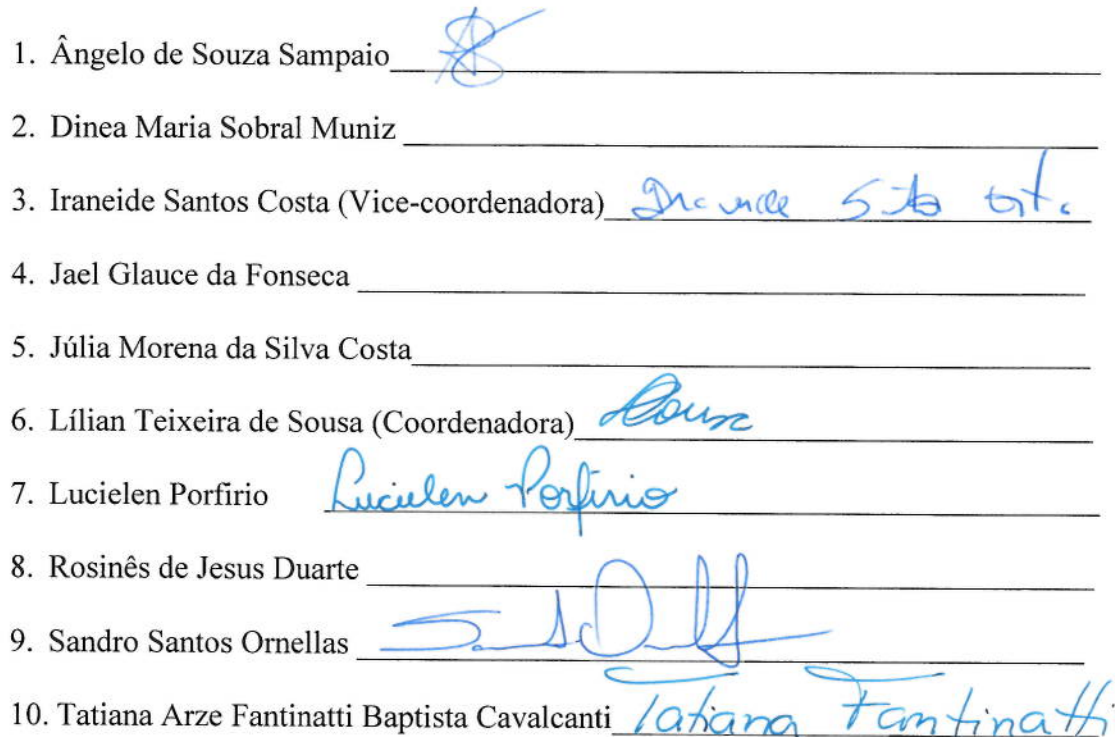 1. Ângelo de Souza Sampaio
2. Dinea Maria Sobral Muniz
3. Iraneide Santos Costa (Vice-coordenadora)
4. Jael Glauce da Fonseca
5. Júlia Morena da Silva Costa
6. Lílian Teixeira de Sousa (Coordenadora) Sousa
7. Lucielen Porfirio Lucielen Porfirio
8. Rosinês de Jesus Duarte
9. Sandro Santos Ornellas
10. Tatiana Arze Fantinatti Baptista Cavalcanti Tatiana Fantinatti